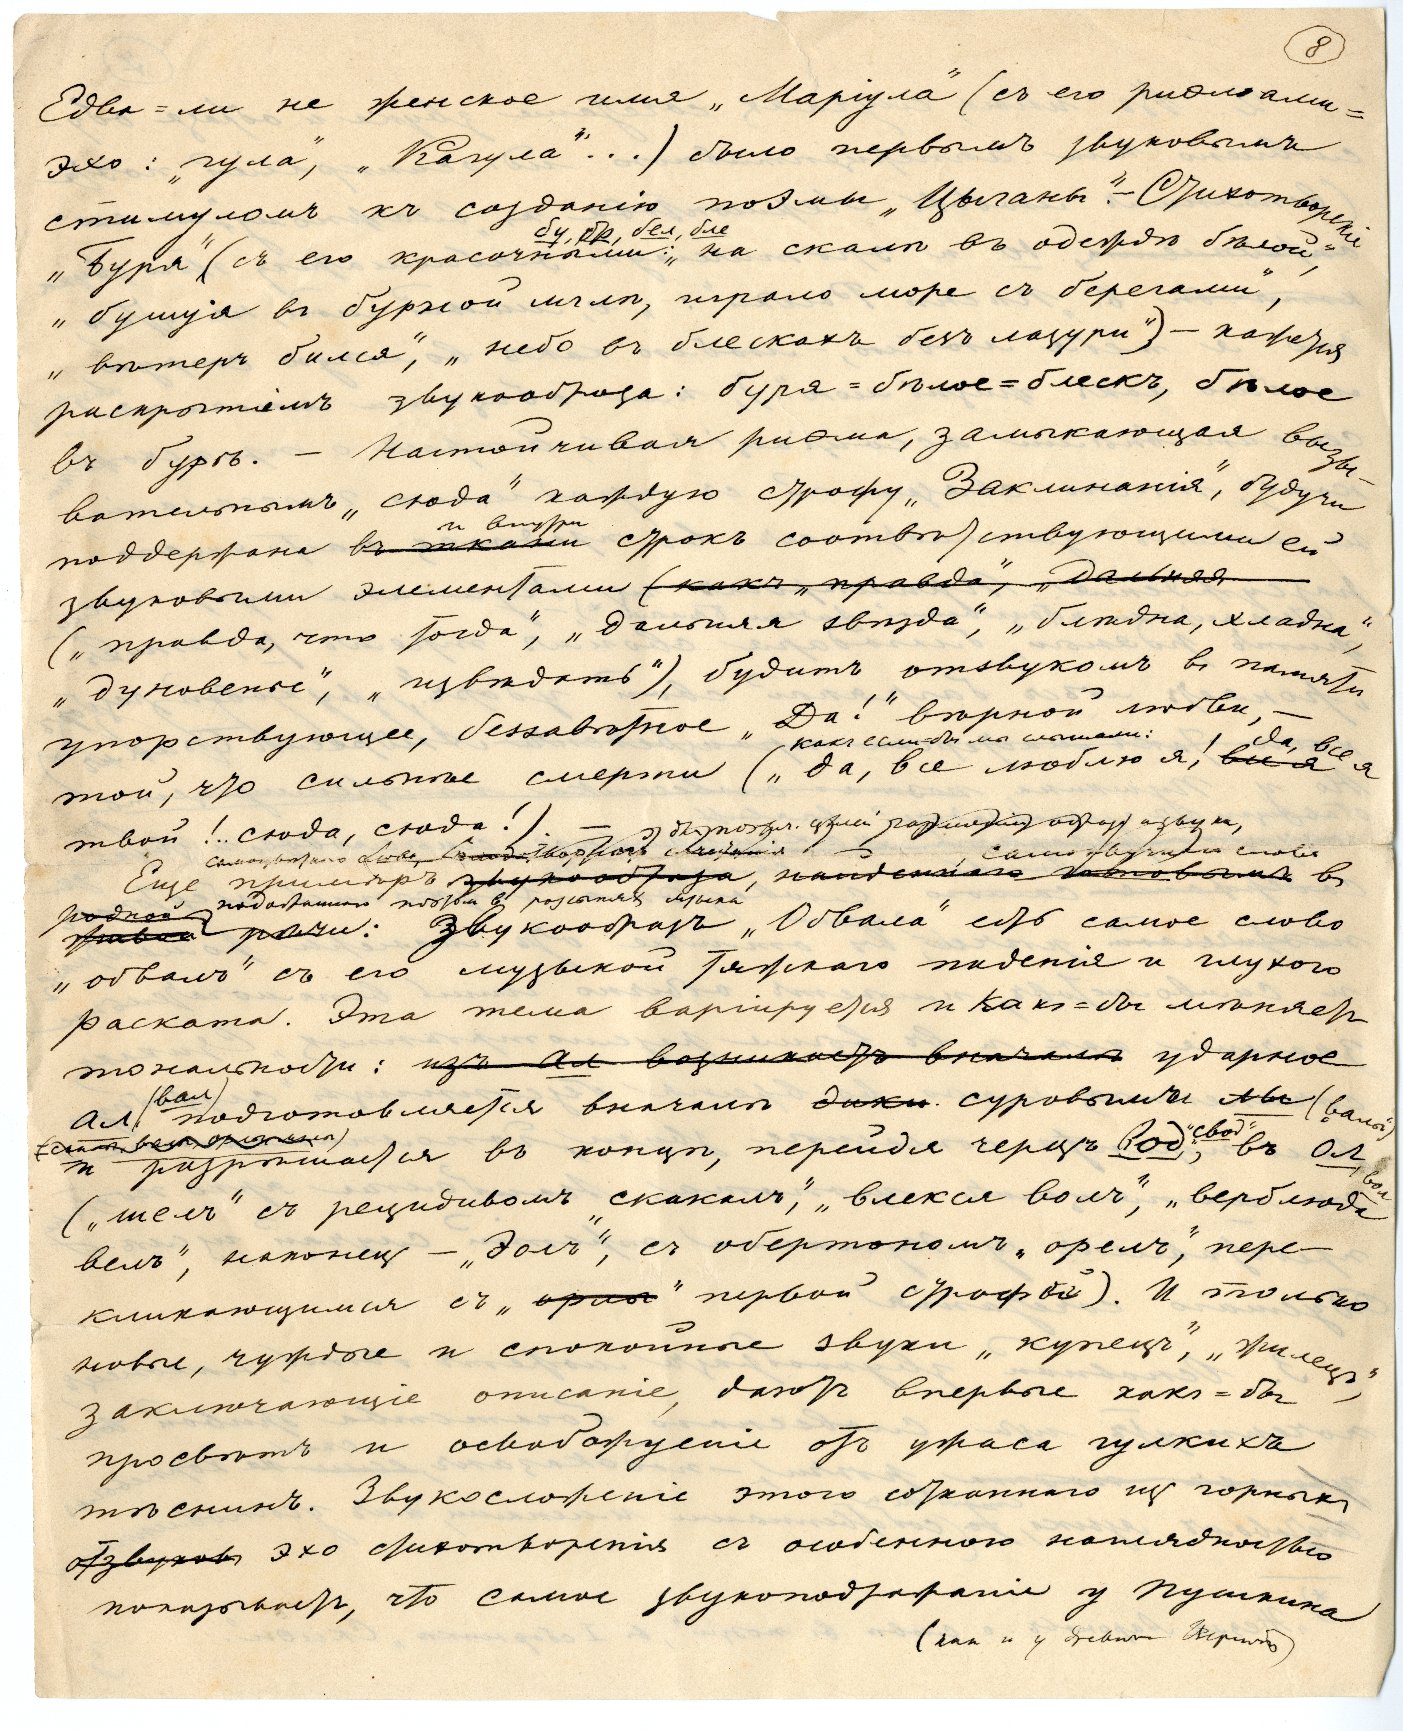 8
Едва=ли не женское имя „Маріула“ (съ его риѳмами=
эхо: „гула“, „Кагула“...) было первымъ звуковымъ
стимуломъ къ созданію поэмы „Цыганы“. – Стихотвореніе
бу, бр, бел, бле
„Буря“ (съ его красочными: „на скалѣ въ одеждѣ бѣлой“,
„бушуя въ бурной мглѣ, играло море съ берегами“,
„вѣтеръ бился“, „небо въ блескахъ безъ лазури“) – кажется
раскрытіемъ звукообраза: буря=бѣлое=блескъ, бѣлое
въ бурѣ. – Настойчивая риѳма, замыкающая вызы-
вательнымъ „сюда“ каждую строфу „Заклинанія“, будучи
и внутри
поддержана въ ткани строкъ соотвѣтствующими ей
звуковыми элементами (какъ „правда“, „дальняя
(„правда, что тогда“, „дальняя звѣзда“, „блѣдна, хладна“,
„дуновенье“, „извѣдать“), будитъ отзвукомъ въ памяти
упорствующее, беззавѣтное „Да!“ вѣрной любви, –
какъ если-бы мы слышали: да, все
той, что сильнѣе смерти („да, все люблю я! все я я
твой!.. сюда, сюда!). –
самозвучнаго слова
Еще примѣръ звукообраза, найденнаго въ
родной подслушаннаго поэтомъ въ языка
живой рѣчи: Звукообразъ „Обвала“ есть самое слово
„обвалъ“ съ его музыкой тяжкаго паденія и глухого
раската. Эта тема варіируется и какъ=бы мѣняетъ
тональность: изъ ал возникаетъ вначалѣ ударное
ал (вал) подготовляется вначалѣ дики суровымъ лы („валы“)
и разрѣшается въ концѣ, перейдя черезъ вод, „свод“ въ ол, вол
(„шелъ“ съ рецидивомъ „скакалъ“, „влекся волъ“, „верблюда
велъ“, наконецъ – „Эолъ“, съ обертономъ „орелъ“, пере-
кликающимся съ „орлы“ первой строфой). И только
новые, чуждые и спокойные звуки „купецъ“, „жилецъ“,
заключающіе описаніе, даютъ впервые какъ=бы
просвѣтъ и освобожденіе отъ ужаса гулкихъ
тѣснинъ. Звукосложеніе этого сотканнаго изъ горныхъ
отзвуковъ эхо стихотворенія съ особенною наглядностью
показываетъ, что самое звукоподражаніе у Пушкина
(как и у древних